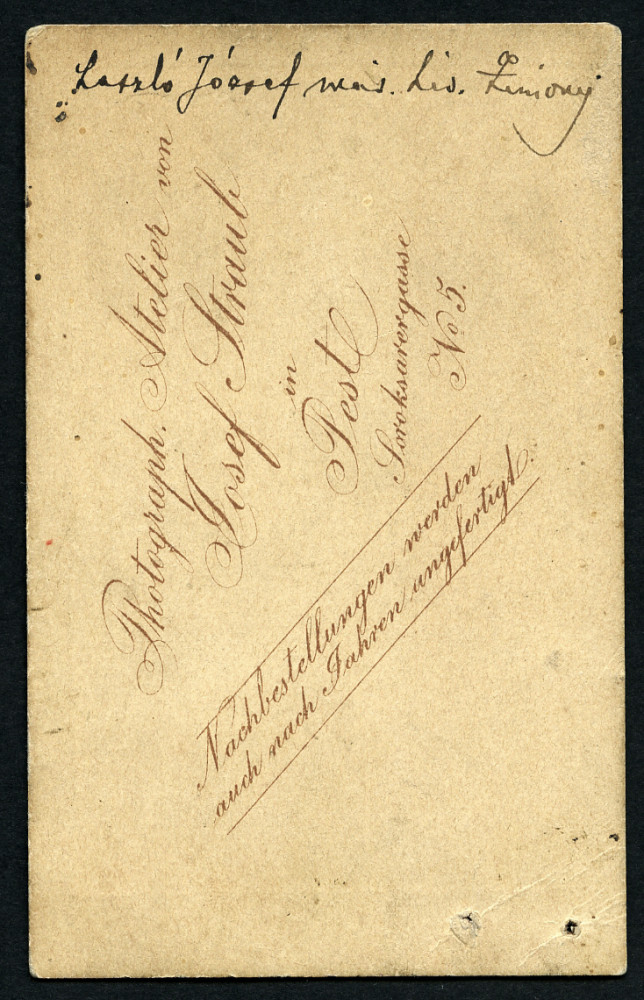 László József
Photograph. Atelier von
Josef Straub
in
Pest
Soroksarergasse
No 5.
Nachbestellungen werden
auch nach Jahren angefertigt.